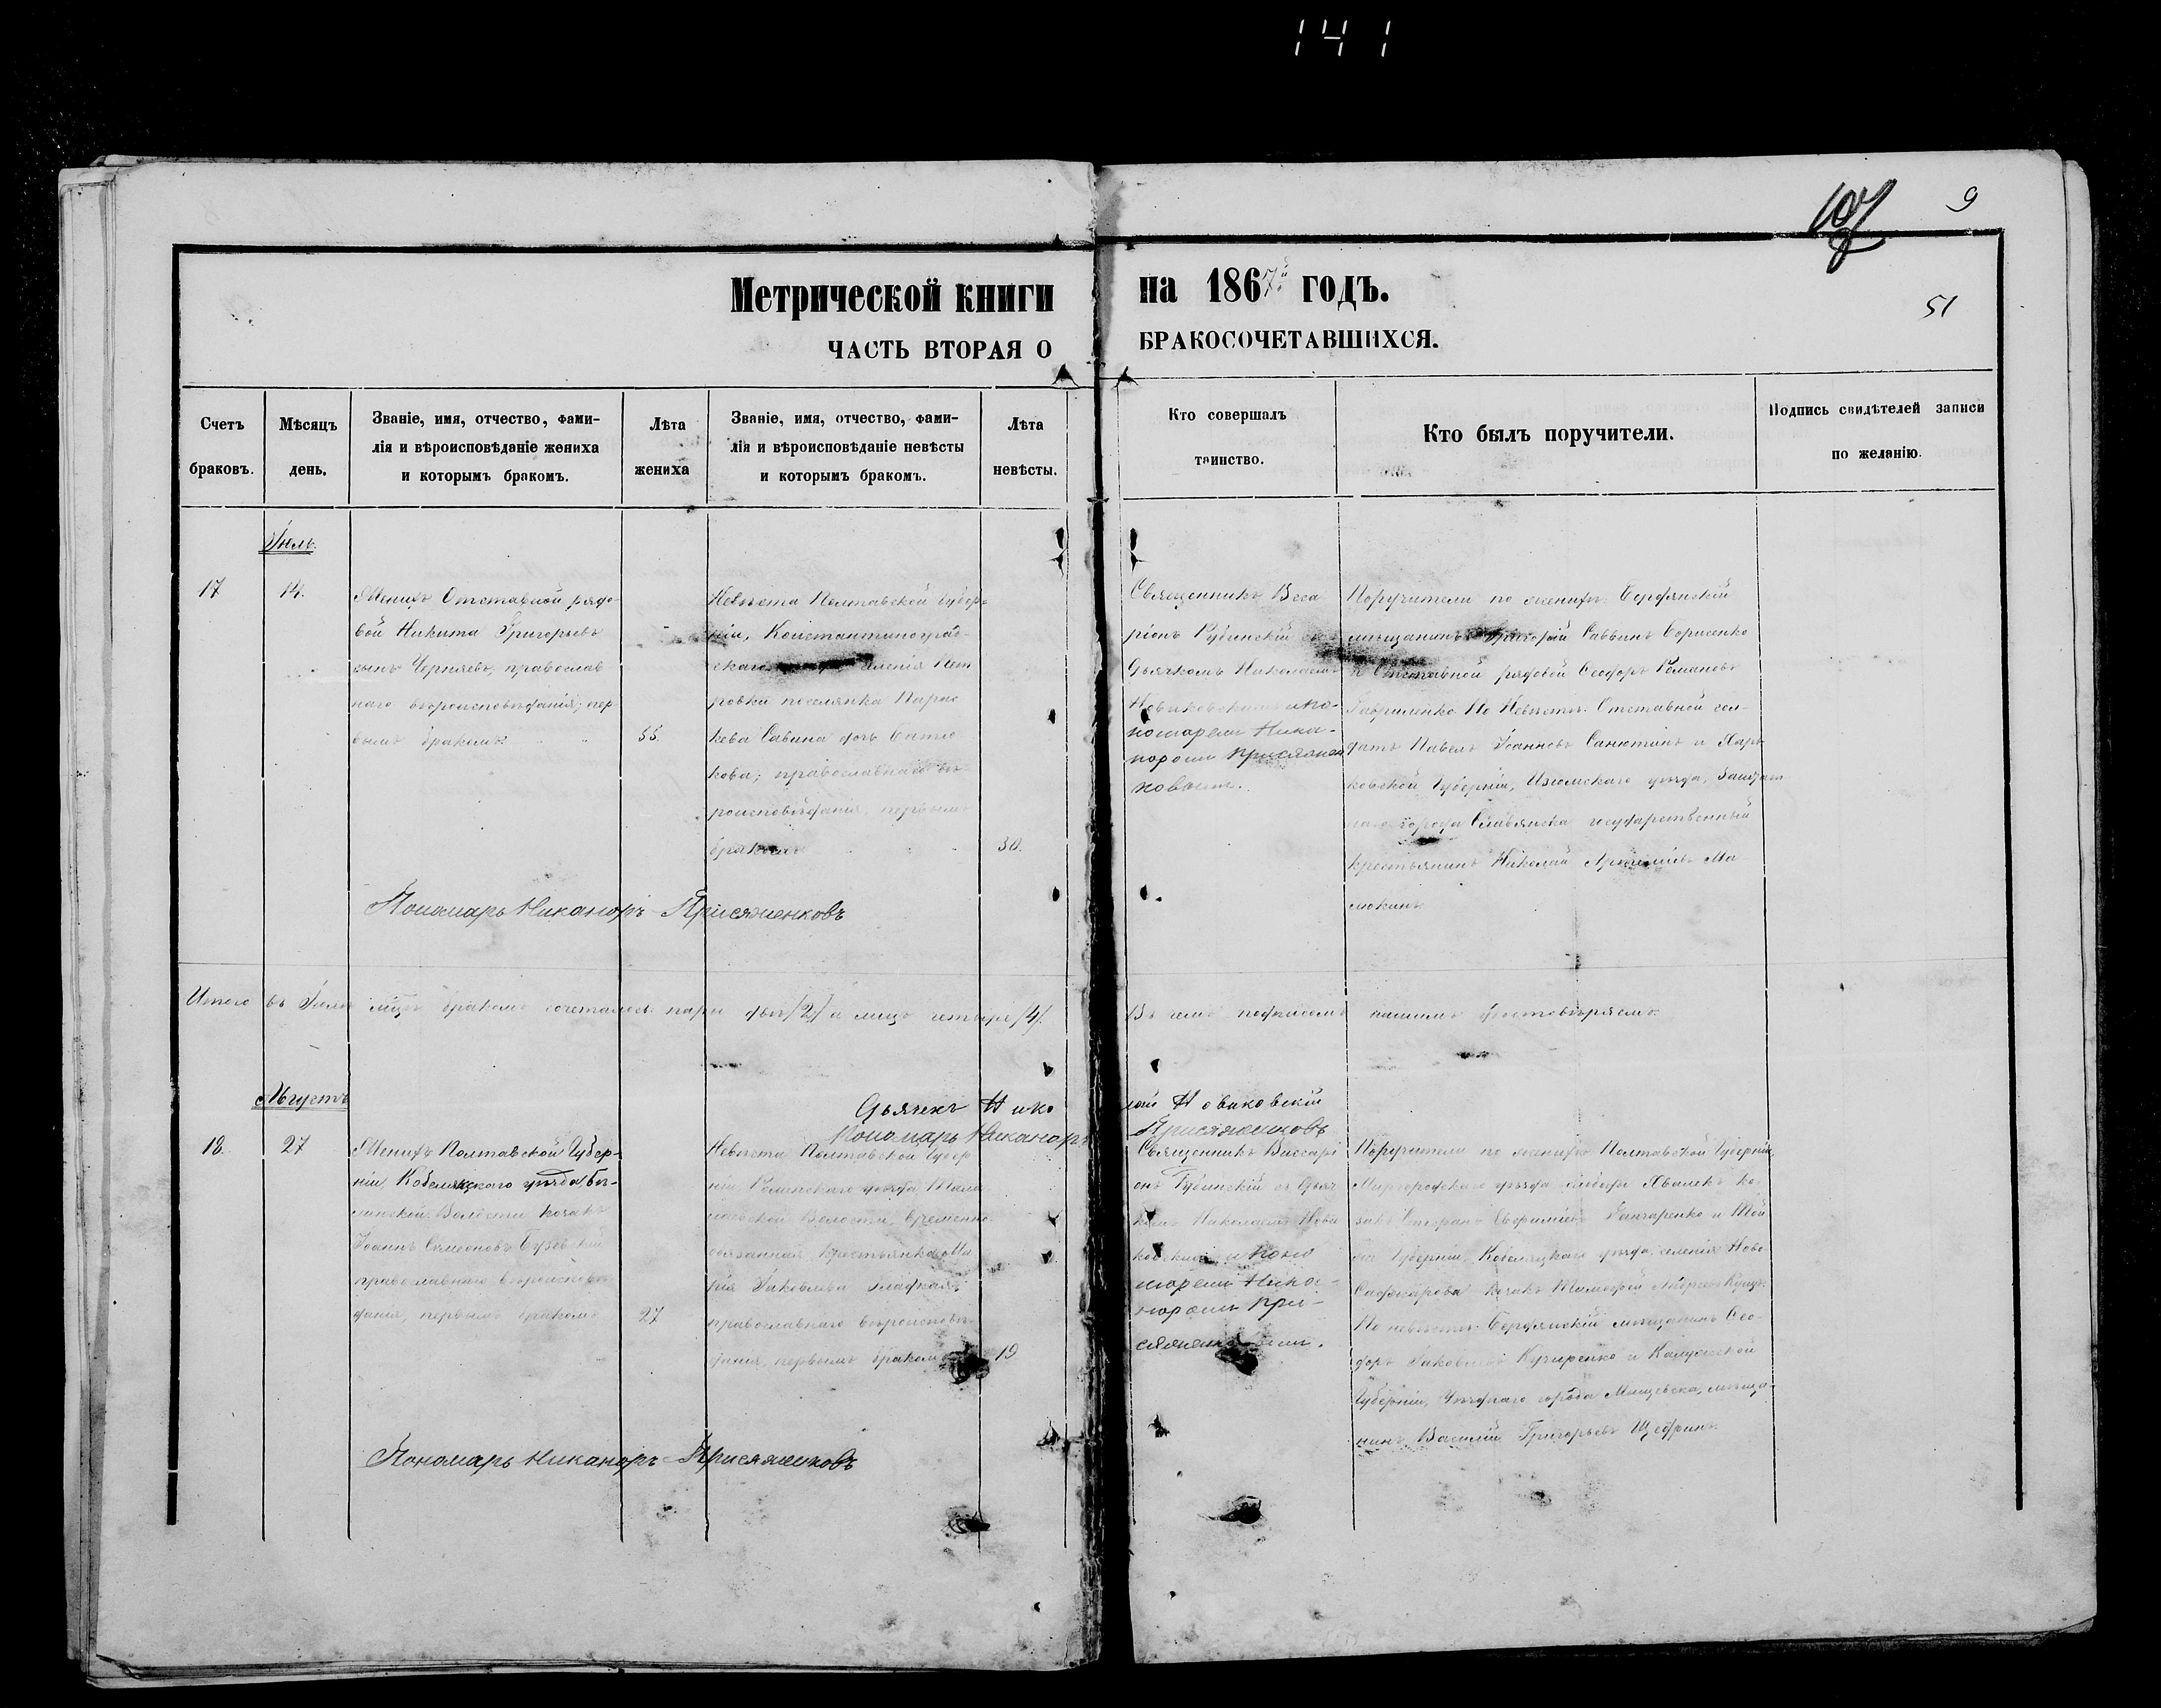 141
107
9
51
Метрической книги на 1867й годъ.
ЧАСТЬ ВТОРАЯ О БРАКОСОЧЕТАВШИХСЯ.
Счетъ браковъ.
Мѣсяцъ день.
Званіе, имя, отчество, фами-
лія и вѣроисповѣданіе жениха
и которымъ бракомъ.
Лѣта жениха
Званіе, имя, отчество, фами-
лія и вѣроисповѣданіе невѣсты
и которымъ бракомъ.
Лѣта невѣсты.
Кто совершалъ
таинство.
Кто былъ поручители.
Подпись свидѣтелей записи
по желанію.
Іюль.
17
14.
Женихъ Отставной рядо-
вой Никита Григорьевъ
сынъ Черняевъ, православ
наго вѣроисповѣданія, пер
вымъ бракомъ.
55.
Невѣста Полтавской Губер-
ніи, Константиноград-
скаго селенія Пет
ровки поселянка Парас
кева Савина дочь
кова; православнаго вѣ-
роисповѣданія, первымъ
бракомъ
30.
Священникъ Висса
ріонъ Рубинскій съ
Дьячкомъ Николаемъ
Новаковскимъ и по-
номаремъ Ника-
норомъ Присяжен
ковымъ.
Поручители по женихѣ: Бердянскій
мѣщанинъ Григорій Саввинъ Борисенко
и Отставной рядовой Ѳеодоръ Романовъ
Гавриленко. По Невѣстѣ: Отставной сол-
датъ Павелъ Іоанновъ Санютинъ и Харь
ковской Губерніи, Изюмскаго уѣзда, Заштат
наго города Славянска государственный
крестьянинъ Николай Ма
люкинъ
Пономарь Никаноръ Присяженковъ
Итого въ Іюлѣ мѣсяцѣ бракомъ сочеталось пары двѣ /2/ а лицъ четыре /4/. Въ чемъ подписомъ нашимъ удостовѣряемъ.
Дьячекъ Николай Новаковскій
Пономарь Никаноръ Присяженковъ
Августъ
18.
27
Женихъ Полтавской Губер-
ніи Кобеляцкаго уѣзда Бѣ-
ликской Волости козакъ
Іоаннъ Симеоновъ
православнаго вѣроисповѣ
данія, первымъ бракомъ
27
Невѣста Полтавской Губер
ніи Роменскаго уѣзда
Волости, временно
обязанная крестьянка Ма
рія Іаковлева Гладкая;
православнаго вѣроисповѣ-
данія, первымъ бракомъ
19
Священникъ Виссарі
онъ Рубинскій съ Дьяч
комъ Николаемъ Нова
ковскимъ и поно
маремъ Ника-
норомъ При-
сяженковымъ.
Поручители по женихѣ Полтавской Губерніи,
Миргородскаго уѣзда ко-
закъ Евфиміевъ Ганчаренко и той
же Губерніи, Кобеляцкаго уѣзда, селенія Ново-
козакъ Тимофей
По невѣстѣ: Бердянскій мѣщанинъ Ѳео-
доръ Іаковлевъ Кучиренко и Калужской
Губерніи, Уѣзднаго города Мещовска, мѣща-
нинъ Василій Григорьевъ Щедринъ.
Пономарь Никаноръ Присяженковъ